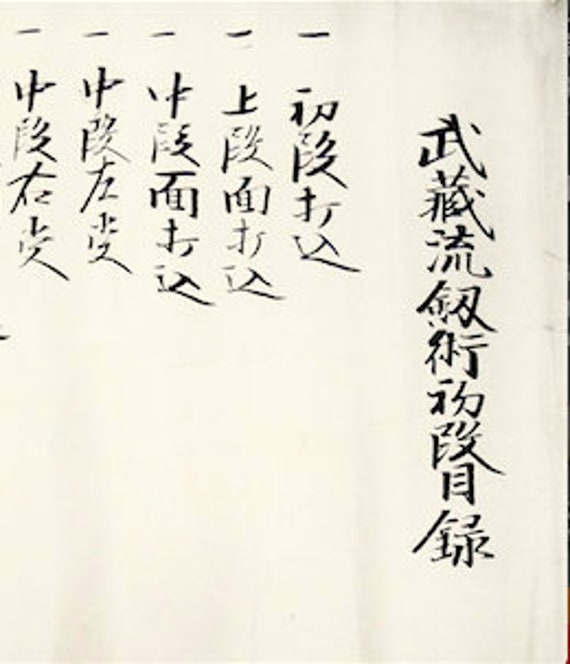 武藏流劔術初段目録
一 初段打込
一 上段面打込
一 中段面打込
一 中段左
一 中段右